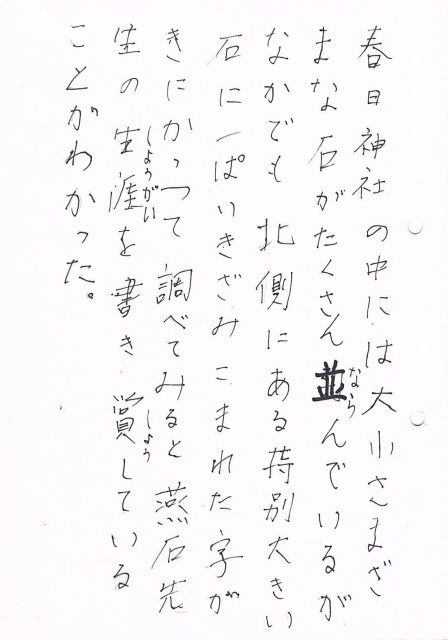 春日神社の中には大小さまざ
まな石がたくさん並んでいるが
なら
なかでも北側にある特別大きい
石に一ぱいきざみこまれた字が
きにかかって調べてみると燕石先
生の生涯を書き賞している
しょうがい
しょう
ことがわかった。